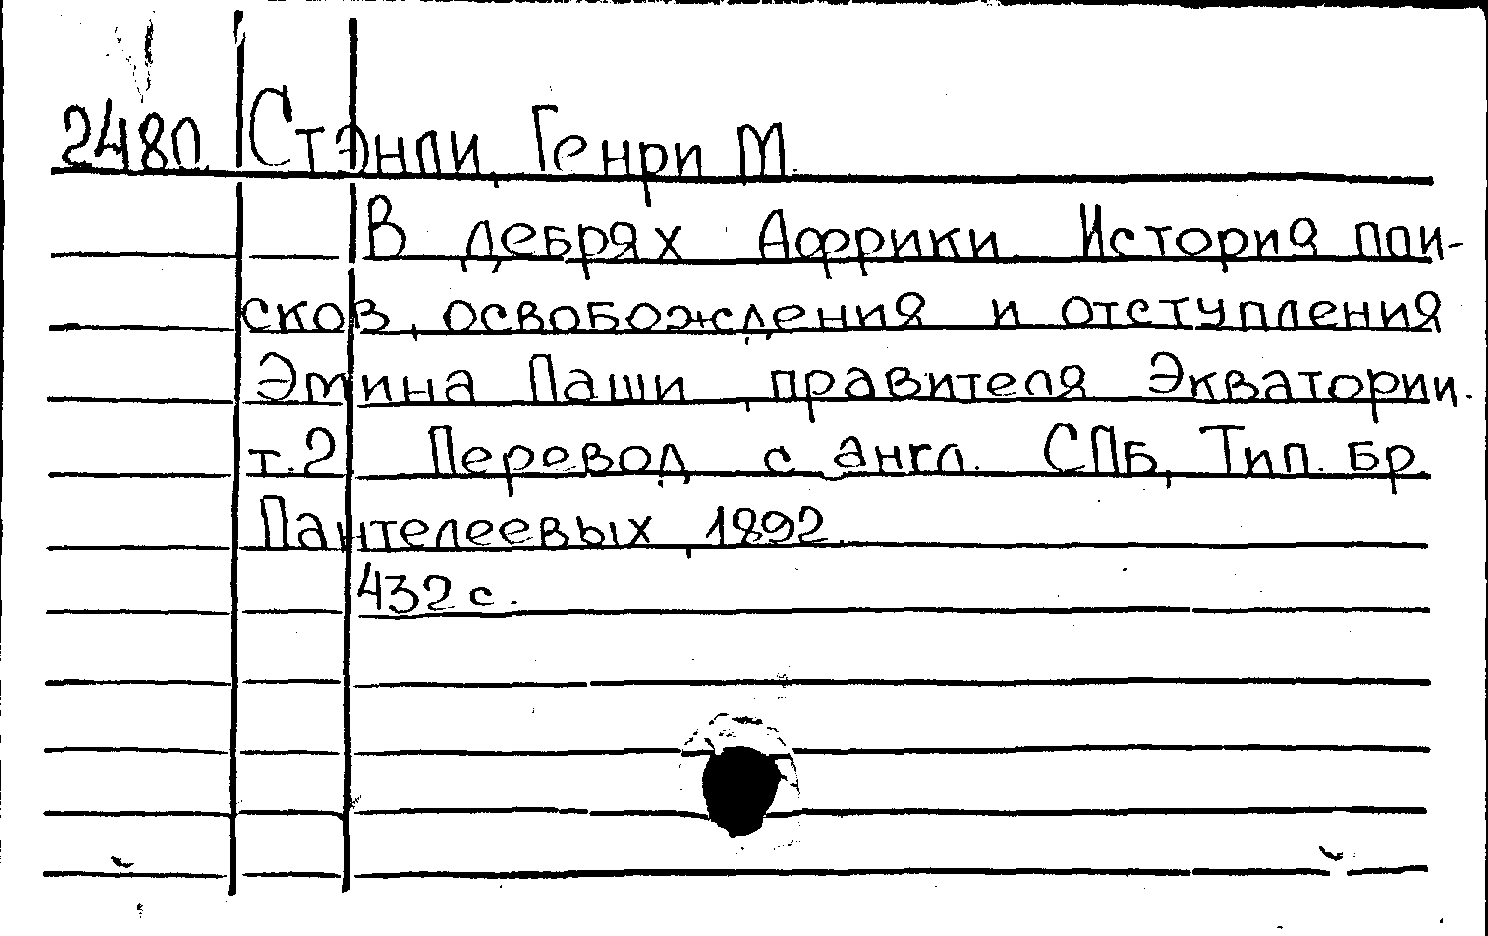 2480 Стэнли, Генри М.
В дебрях Африки. История пои-
сков, освобождения и отступления
Эмина Паши, правителя Экватории.
т.2 Перевод с англ. СПБ, Тип. бр.
Пантелеевых, 1892.
432 с.